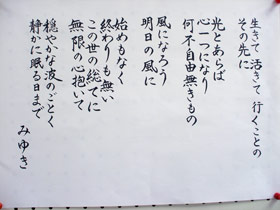 生きて 活きて 行くことの
その先に
光とあらば
心一つになり
何不自由無きもの
風になろう
明日の風に
始めもなく
終わりも無い
この世の総てに
無限の心抱いて
穏やかな波のごとく
静かに眠る日まで
みゆき